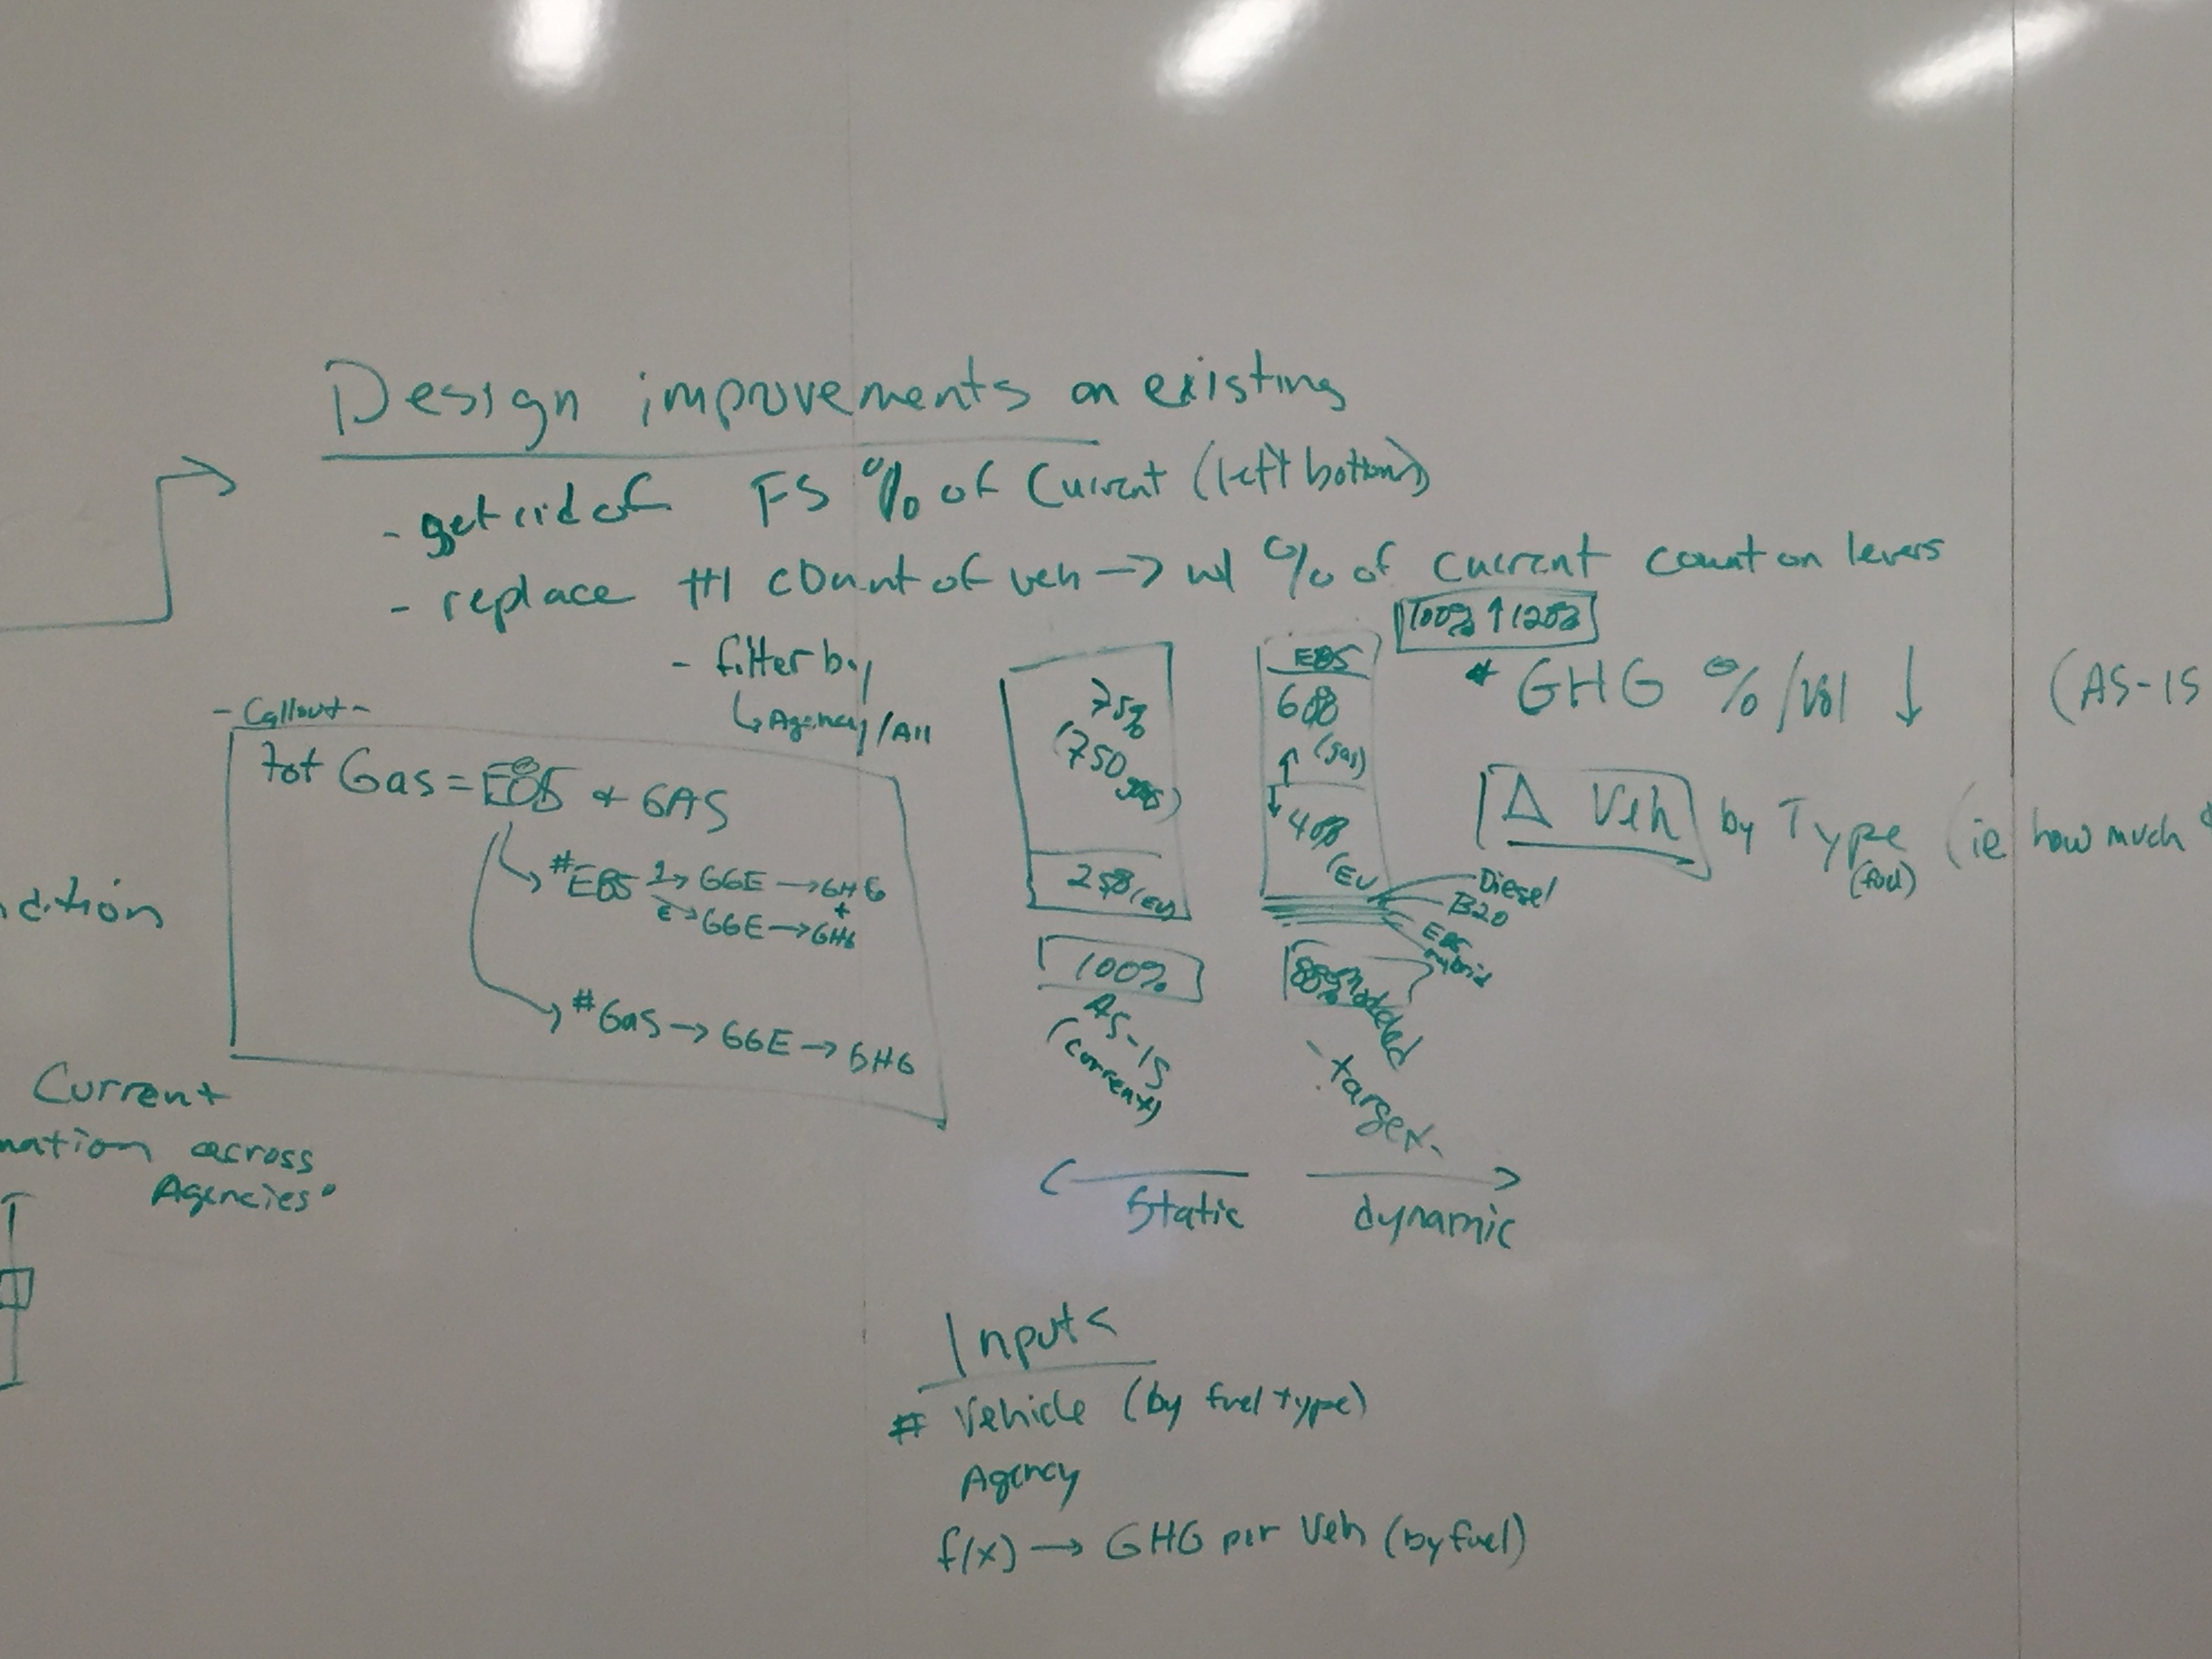 Design improvements on existing
- get rid of FS % of Current (left bottom)
- replace # count of veh → w/ % of current count on levers
100% ↑ 120%
- filter by
↳ Agency / All
- Callout -
tot Gas = E85 + GAS
#E85 → GGE → GHG
+
E → GGE → GHG
#Gas → GGE → GHG
75%
(750
25% (EV)
100%
AS-IS
(current)
E85
60%
↑ (gas)
↓ 40%
(EV
Diesel
B20
E85
Hybrid
Target
* GHG % / Vol ↓
(AS-IS
Δ Veh by Type (ie how much
(fuel)
← Static
dynamic →
dition
Current
mation across
Agencies"
Inputs
# Vehicle (by fuel type)
Agency
f(x) → GHG per Veh (by fuel)